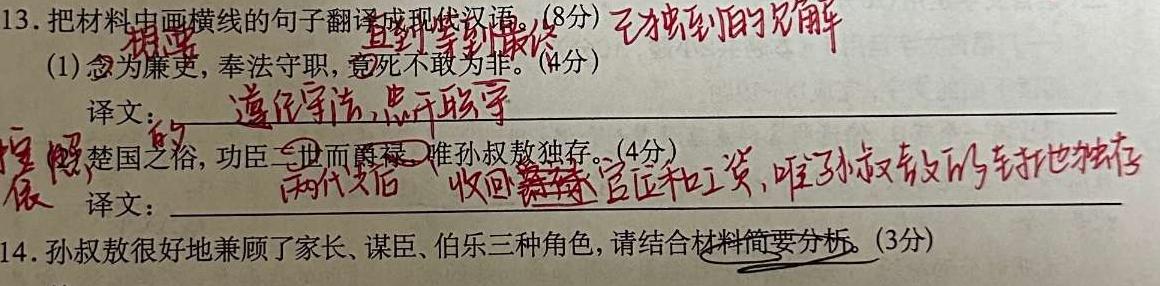 13. 把材料中画横线的句子翻译成现代汉语。(8分)
想要 直到等到最终
(1) 念为廉吏, 奉法守职, 竟死不敢为非。(4分)
译文: 遵纪守法、
的
(2) 楚国之俗, 功臣二世而爵禄 唯孙叔敖独存。(4分)
依照 两代之后 收回 官位和工资, 唯孙叔敖的封地独存
译文:
14. 孙叔敖很好地兼顾了家长、谋臣、伯乐三种角色, 请结合材料简要分析。(3分)